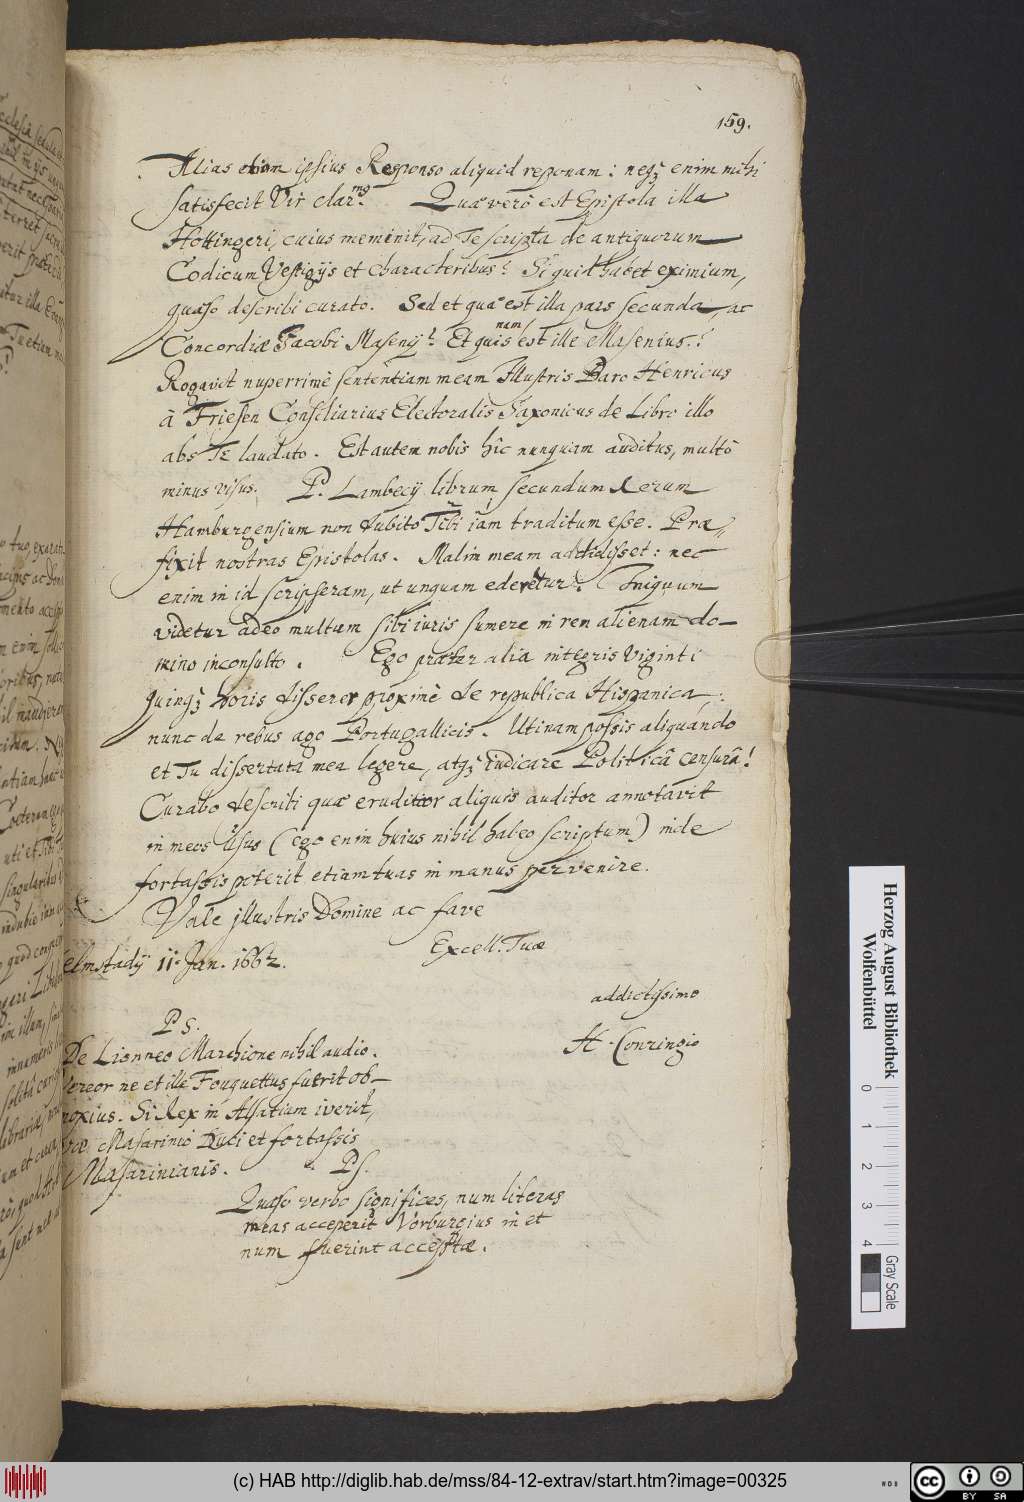 159.
Alias etiam ipsius Responso aliquid reponam: neqꝫ enim mihi
satisfecit Vir clar.mꝰ Quæ verò est Epistola illa
Hottingeri, cuius meminit, ad Te scripta de antiquorum
Codicum Vestigijs et characteribus? Si quid habet eximium,
quæso describi curato. Sed et quæ est illa pars secunda, ac
Concordiæ Jacobi Masenij? Et quisnam est ille Masenius?
Rogavit nuperrimè sententiam meam Illustris Baro Henricus
à Friesen Consiliarius Electoralis Saxonicus de Libro illo
abs Te laudato. Est autem nobis hîc nunquam auditus, multò
minus visus. P. Lambecij librum secundum Rerum
Hamburgensium non dubito Tibi iam traditum esse. Præ⸗
fixit nostras Epistolas. Malim meam addidisset: nec
enim in id scripseram, ut unquam ederetur. Iniquum
videtur adeo multum sibi iuris sumere in rem alienam do—
mino inconsulto. Ego præter alia integris Viginti
quinqꝫ horis disserer proximè de republica Hispanica,
nunc de rebus ago Portugallicis. Utinam possis aliquando
et Tu dissertata mea legere, atqꝫ iudicare Politicâ censurâ!
Curabo describi quæ eruditior aliquis auditor annotavit
in meos usus (ego enim huius nihil habeo scriptum) inde
fortassis poterit etiam tuas in manus pervenire.
Vale illustris Domine ac fave
Excell. Tuæ
elmstadij 11. Jan. 1662.
addictissimo
H. Conringio
P S.
De Lionneo Marchione nihil audio.
Vereor ne et ille Fouquettus fuerit ob—
noxius. Si Rex in Alsatiam iverit,
væ Masarinio Duci et fortassis
Masarinianis.
PS.
Quæso verbo significes, num literas
meas acceperit Vorburgius in et
num fuerint acceptæ.
Herzog August Bibliothek
Wolfenbüttel
0 1 2 3 4
Gray Scale
(c) HAB http://diglib.hab.de/mss/84-12-extrav/start.htm?image=00325
cc BY SA